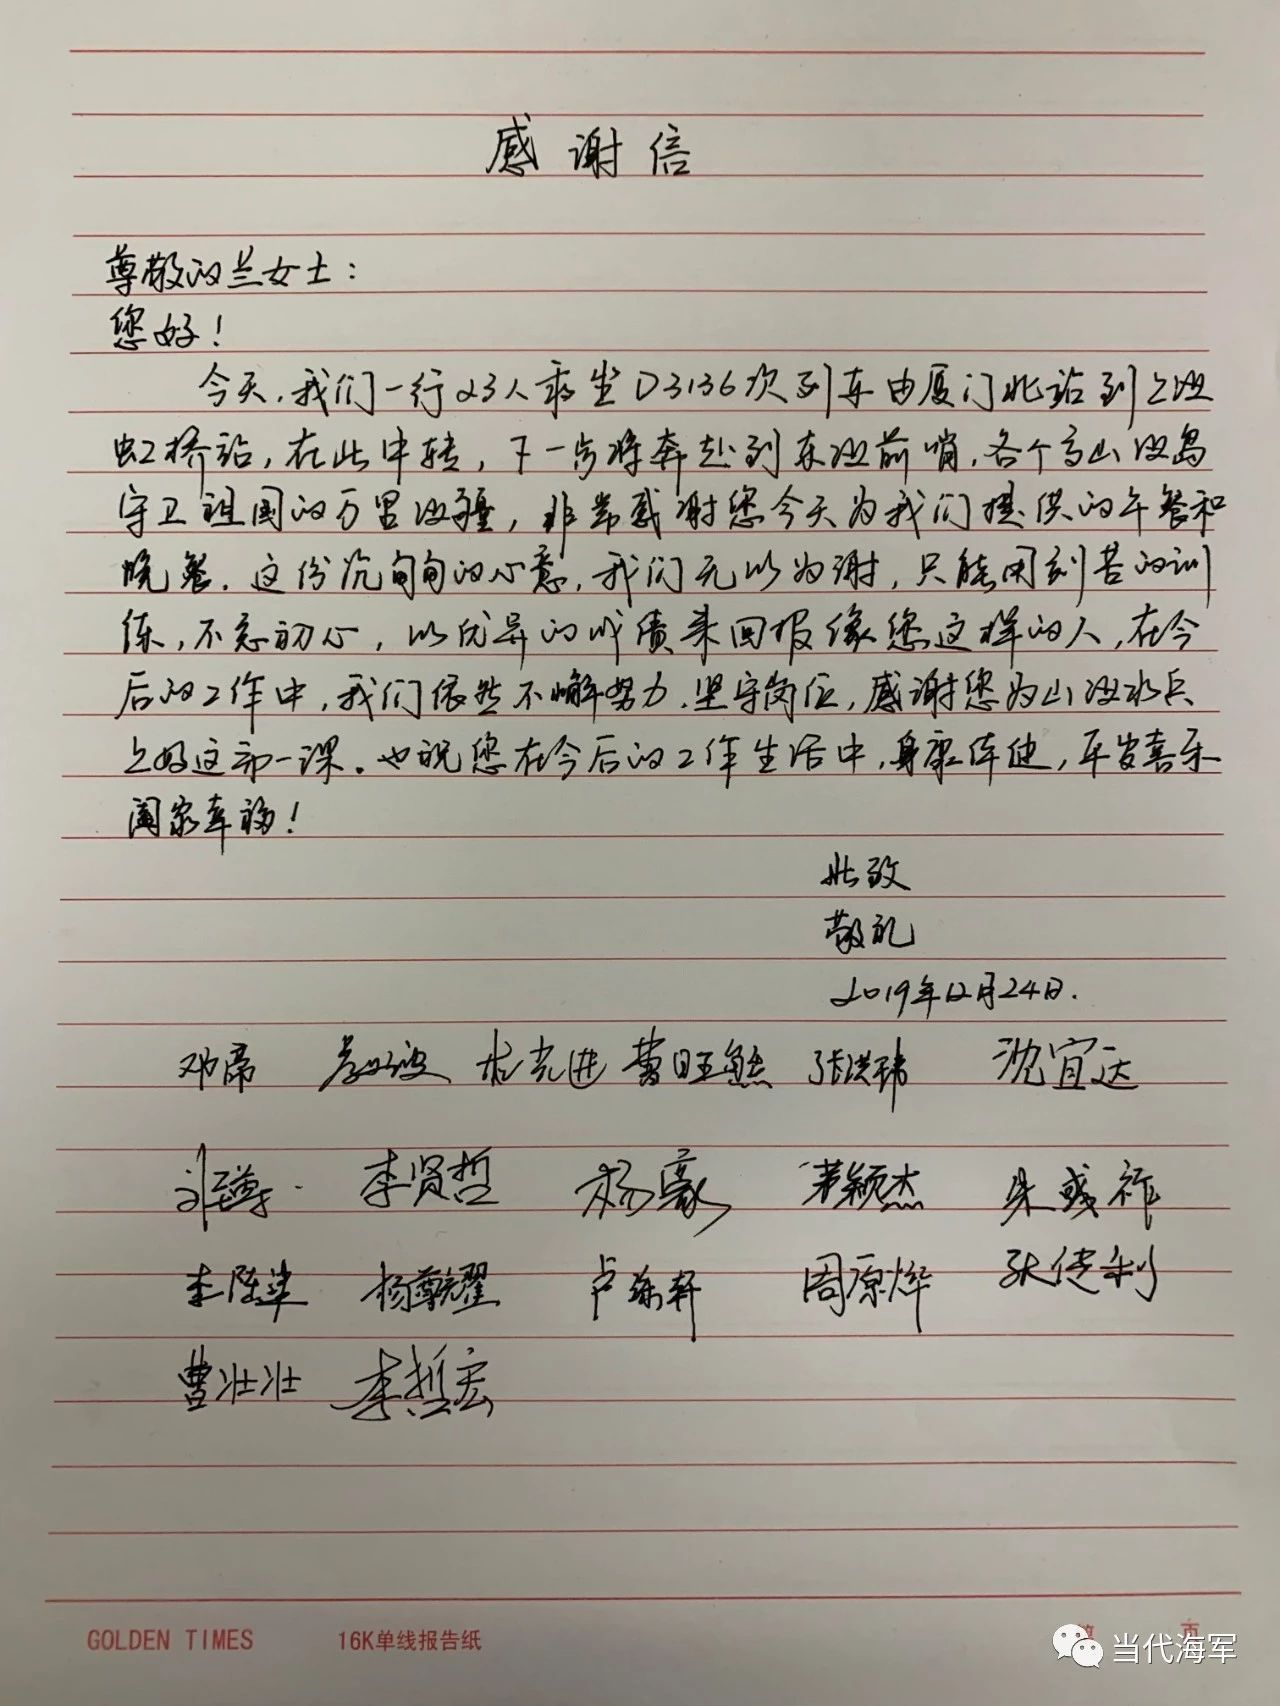 感谢信
尊敬的兰女士：
您好！
今天，我们一行23人乘坐D3136次列车由厦门北站到上海
虹桥站，在此中转，下一步将奔赴到东海前哨，各个高山海岛
守卫祖国的万里海疆，非常感谢您今天为我们提供的午餐和
晚餐．这份沉甸甸的心意，我们无以为谢，只能用刻苦的训
练，不忘初心，以优异的成绩来回报像您这样的人，在今
后的工作中，我们依然不懈努力．坚守岗位，感谢您为山海水兵
上好这第一课．也祝您在今后的工作生活中，身康体健，平安喜乐
阖家幸福！
此致
敬礼
2019年12月24日．
邓帝 杜克进 张洪玮 沈宜达
李贤哲 杨豪 茅颖杰 朱彧祚
杨尊耀 周原烨 张传利
曹壮壮 李哲宏
GOLDEN TIMES 16K单线报告纸 页
当代海军